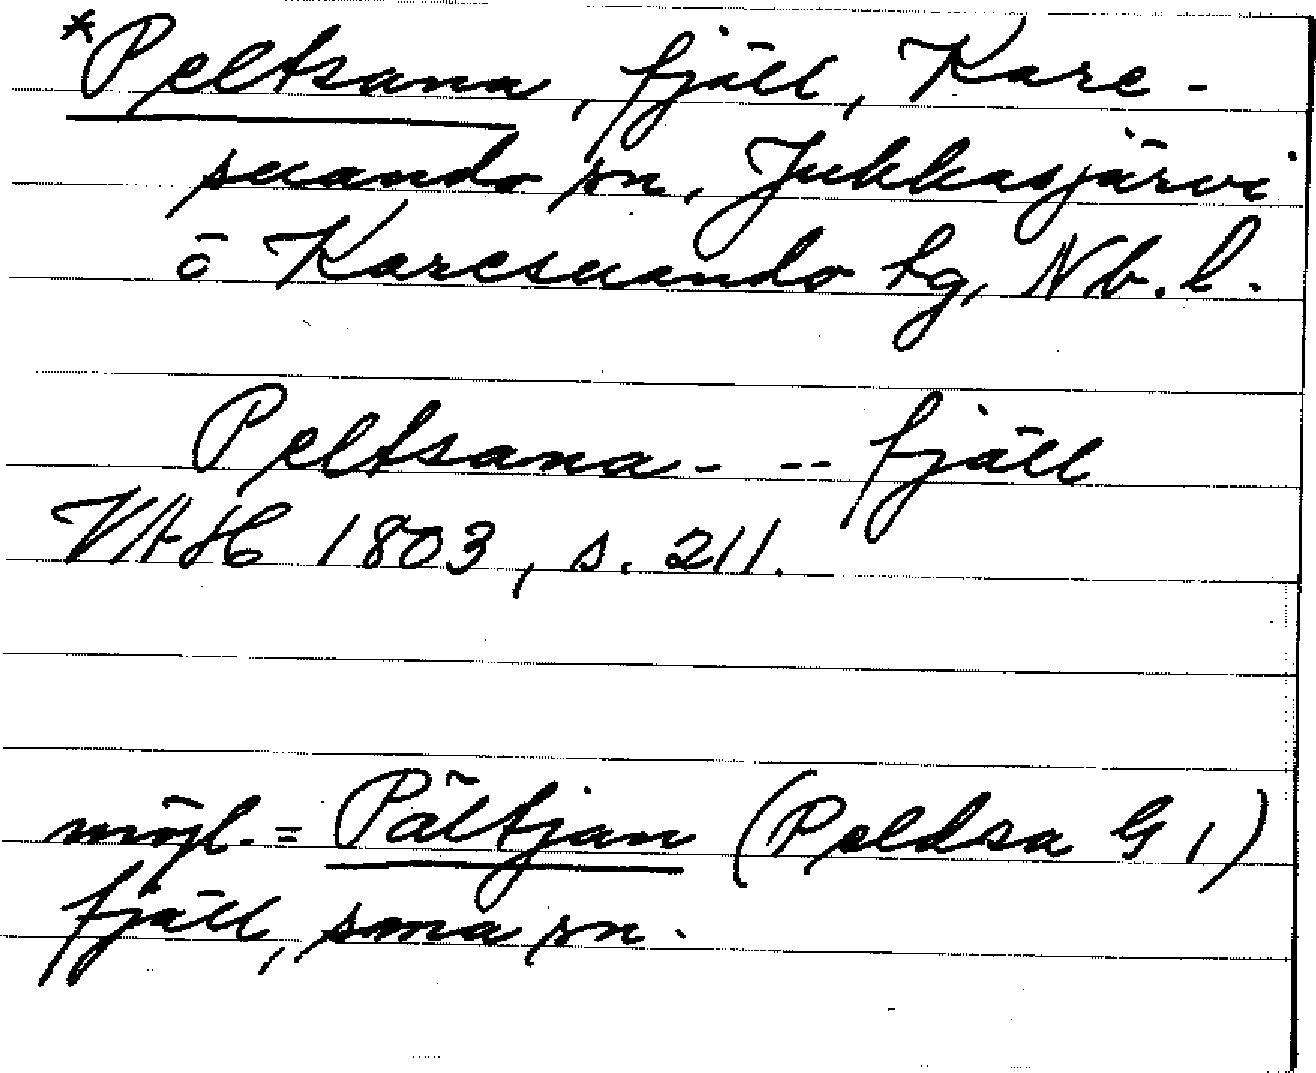 *Peltsana, fjäll, Kare-
suando sn, Jukkasjärvi
o Karesuando tg, Nb. l.
Peltsana- -- fjäll
VHAH 1803, s. 211.
möjl. = Pältjan (Peldsa G 1)
fjäll, sma sn.